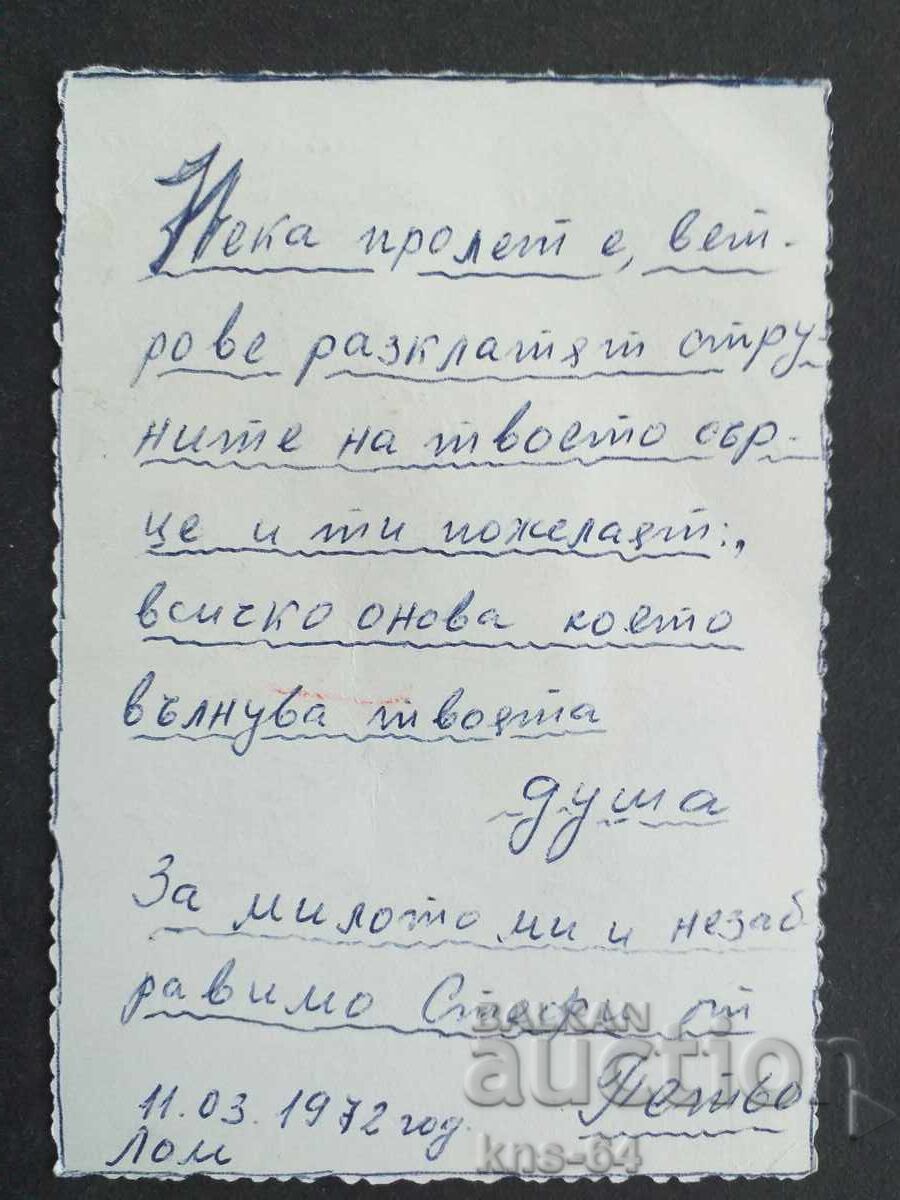 Нека пролет е, вет-
рове разклатят стру-
ните на твоето сър-
це и ти пожелаят:„
всичко онова което
вълнува твоята
душа
За милото ми и незаб
равимо Стефи от
Петьо
11.03.1972 год.
Лом
BALKAN
auction
kns-64